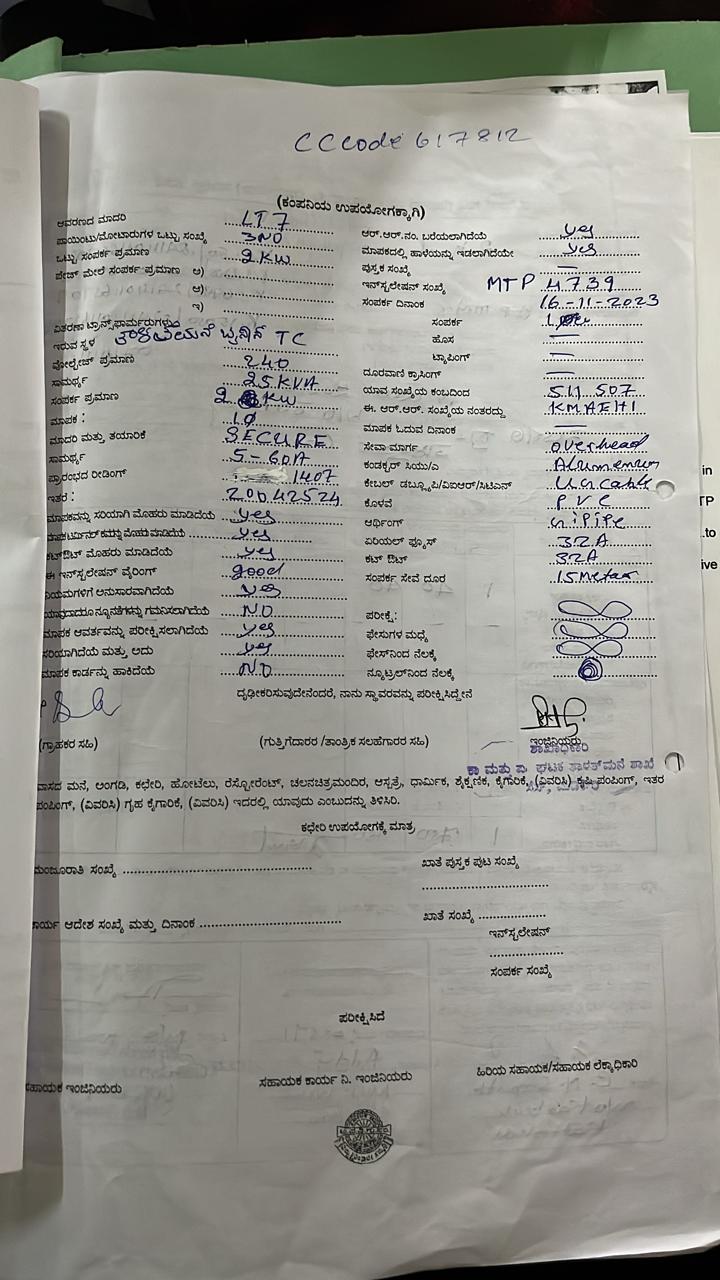 CC code 617812
(ಕಂಪನಿಯ ಉಪಯೋಗಕ್ಕಾಗಿ)
ಆವರಣದ ಮಾದರಿ LT 7
ಪಾಯಿಂಟು/ಮೋಟಾರುಗಳ ಒಟ್ಟು ಸಂಖ್ಯೆ 3NO
ಒಟ್ಟು ಸಂಪರ್ಕ ಪ್ರಮಾಣ 2 KW
ಪೇಜ್ ಮೇಲೆ ಸಂಪರ್ಕ ಪ್ರಮಾಣ ಅ)
ಆ)
ಇ)
ವಿತರಣಾ ಟ್ರಾನ್ಸ್‌ಫಾರ್ಮರುಗಳನ್ನು
ಇರುವ ಸ್ಥಳ TC
ವೋಲ್ಟೇಜ್ ಪ್ರಮಾಣ 240
ಸಾಮರ್ಥ್ಯ 25 KVA
ಸಂಪರ್ಕ ಪ್ರಮಾಣ 2 KW
ಮಾಪಕ : 1Ø
ಮಾದರಿ ಮತ್ತು ತಯಾರಿಕೆ SECURE
ಸಾಮರ್ಥ್ಯ 5-60A
ಪ್ರಾರಂಭದ ರೀಡಿಂಗ್ 1407
ಇತರ : 20042524
ಮಾಪಕವನ್ನು ಸರಿಯಾಗಿ ಮೊಹರು ಮಾಡಿದೆಯೆ yes
ಮಾಪಕ ಟರ್ಮಿನಲ್ ಕವರನ್ನು ಮೊಹರು ಮಾಡಿದೆಯೆ yes
ಕಟ್‌ಔಟ್ ಮೊಹರು ಮಾಡಿದೆಯೆ yes
ಈ ಇನ್‌ಸ್ಟಲೇಷನ್ ವೈರಿಂಗ್ good
ನಿಯಮಗಳಿಗೆ ಅನುಸಾರವಾಗಿದೆಯೆ yes
ಯಾವುದಾದರೂ ನ್ಯೂನತೆಗಳನ್ನು ಗಮನಿಸಲಾಗಿದೆಯೆ NO
ಮಾಪಕ ಆವರ್ತವನ್ನು ಪರೀಕ್ಷಿಸಲಾಗಿದೆಯೆ yes
ಸರಿಯಾಗಿದೆಯೆ ಮತ್ತು ಅದು yes
ಮಾಪಕ ಕಾರ್ಡನ್ನು ಹಾಕಿದೆಯೆ NO
ಆರ್.ಆರ್.ನಂ. ಬರೆಯಲಾಗಿದೆಯೆ yes
ಮಾಪಕದಲ್ಲಿ ಹಾಳೆಯನ್ನು ಇಡಲಾಗಿದೆಯೇ yes
ಪುಸ್ತಕ ಸಂಖ್ಯೆ —
ಇನ್‌ಸ್ಟಲೇಷನ್ ಸಂಖ್ಯೆ MTP 4739
ಸಂಪರ್ಕ ದಿನಾಂಕ 16-11-2023
ಸಂಪರ್ಕ
ಹೊಸ —
ಟ್ಯಾಪಿಂಗ್ —
ದೂರವಾಣಿ ಕ್ರಾಸಿಂಗ್ —
ಯಾವ ಸಂಖ್ಯೆಯ ಕಂಬದಿಂದ
ಈ. ಆರ್.ಆರ್. ಸಂಖ್ಯೆಯ ನಂತರದ್ದು
ಮಾಪಕ ಓದುವ ದಿನಾಂಕ
ಸೇವಾ ಮಾರ್ಗ overhead
ಕಂಡಕ್ಟರ್ ಸಿಯು/ಎ Alumenum
ಕೇಬಲ್ ಡಬ್ಲ್ಯೂಪಿ/ವಿಐಆರ್/ಸಿಟಿಎಸ್
ಕೊಳವೆ PVC
ಆರ್ಥಿಂಗ್ GiPipe
ಏರಿಯಲ್ ಫ್ಯೂಸ್ 32A
ಕಟ್ ಔಟ್ 32A
ಸಂಪರ್ಕ ಸೇವೆ ದೂರ 15 Metar
ಪರೀಕ್ಷೆ:
ಫೇಸುಗಳ ಮಧ್ಯೆ
ಫೇಸ್‌ನಿಂದ ನೆಲಕ್ಕೆ
ನ್ಯೂಟ್ರಲ್‌ನಿಂದ ನೆಲಕ್ಕೆ
ದೃಢೀಕರಿಸುವುದೇನೆಂದರೆ, ನಾನು ಸ್ಥಾವರವನ್ನು ಪರೀಕ್ಷಿಸಿದ್ದೇನೆ
(ಗ್ರಾಹಕರ ಸಹಿ) (ಗುತ್ತಿಗೆದಾರರ /ತಾಂತ್ರಿಕ ಸಲಹೆಗಾರರ ಸಹಿ) ಇಂಜಿನಿಯರು
ಶಾಖಾಧಿಕಾರಿ
ವಾಸದ ಮನೆ, ಅಂಗಡಿ, ಕಛೇರಿ, ಹೋಟೆಲು, ರೆಸ್ಟೋರೆಂಟ್, ಚಲನಚಿತ್ರಮಂದಿರ, ಆಸ್ಪತ್ರೆ, ಧಾರ್ಮಿಕ, ಶೈಕ್ಷಣಿಕ, ಕೈಗಾರಿಕೆ, (ವಿವರಿಸಿ) ಕೃಷಿ ಪಂಪಿಂಗ್, ಇತರ
ಪಂಪಿಂಗ್, (ವಿವರಿಸಿ) ಗೃಹ ಕೈಗಾರಿಕೆ, (ವಿವರಿಸಿ) ಇದರಲ್ಲಿ ಯಾವುದು ಎಂಬುದನ್ನು ತಿಳಿಸಿರಿ.
ಕಛೇರಿ ಉಪಯೋಗಕ್ಕೆ ಮಾತ್ರ
ಮಂಜೂರಾತಿ ಸಂಖ್ಯೆ ಖಾತೆ ಪುಸ್ತಕ ಪುಟ ಸಂಖ್ಯೆ
ಕಾರ್ಯ ಆದೇಶ ಸಂಖ್ಯೆ ಮತ್ತು ದಿನಾಂಕ ಖಾತೆ ಸಂಖ್ಯೆ
ಇನ್‌ಸ್ಟಲೇಷನ್
ಸಂಪರ್ಕ ಸಂಖ್ಯೆ
ಪರೀಕ್ಷಿಸಿದೆ
ಸಹಾಯಕ ಇಂಜಿನಿಯರು ಸಹಾಯಕ ಕಾರ್ಯ ನಿ. ಇಂಜಿನಿಯರು ಹಿರಿಯ ಸಹಾಯಕ/ಸಹಾಯಕ ಲೆಕ್ಕಾಧಿಕಾರಿ